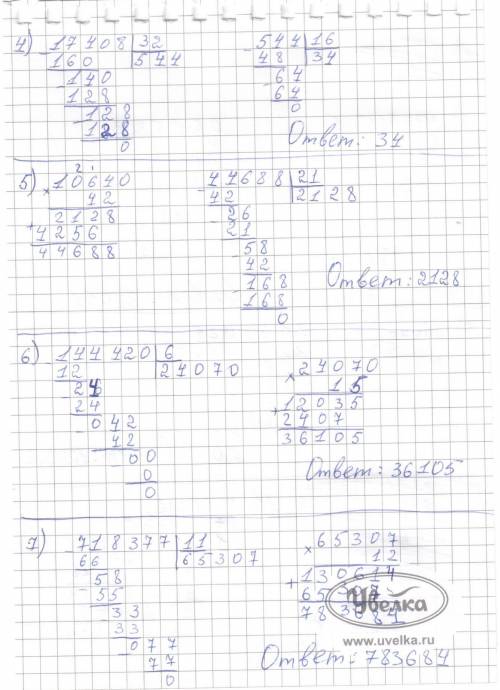 4) - 17408 | 32
160 544
- 140
128
- 128
128
0
- 544 | 16
48 34
- 64
64
0
Ответ: 34
5) 2 1
× 10640
42
+ 2128
4256
44688
- 44688 | 21
42 2128
- 26
21
- 58
42
- 168
168
0
Ответ: 2128
6) - 144420 | 6
12 24070
- 24
24
- 042
42
- 00
0
0
× 24070
15
+ 12035
2407
36105
Ответ: 36105
7) - 718377 | 11
66 65307
- 58
55
- 33
33
- 077
77
0
× 65307
12
+ 130614
65307
783684
Увелка
www.uvelka.ru
Ответ: 783684